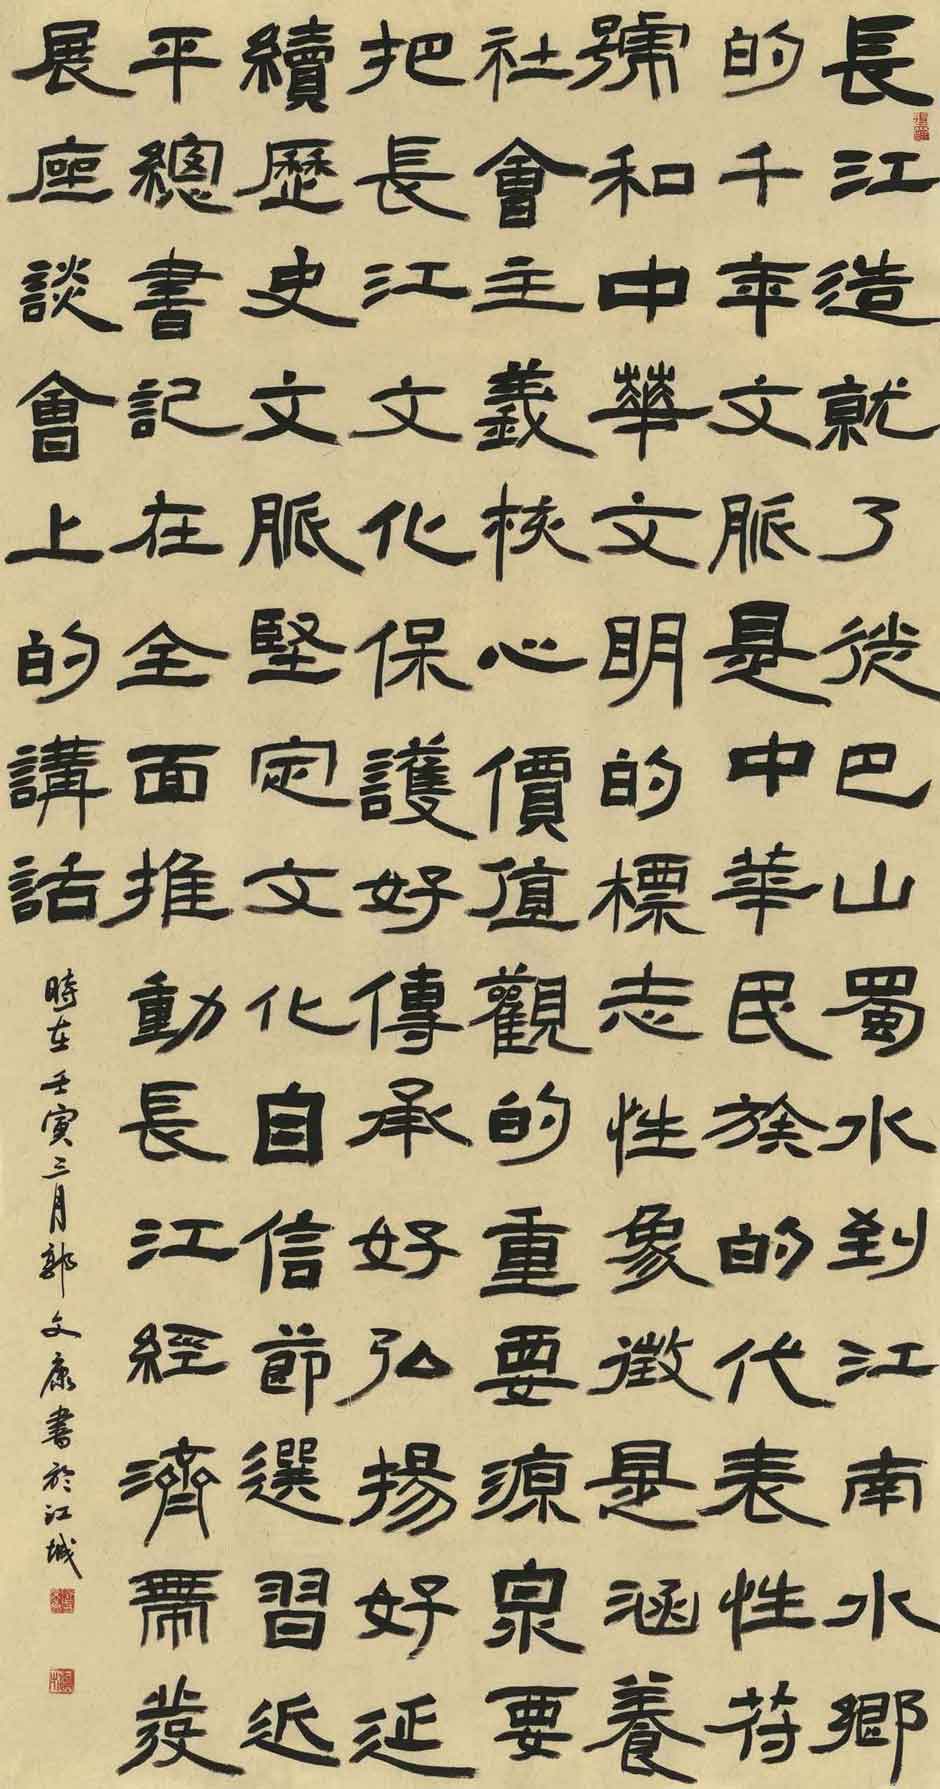 長江造就了從巴山蜀水到江南水鄉
的千年文脈是中華民族的代表性符
號和中華文明的標志性象徵是涵養
社會主義核心價值觀的重要源泉要
把長江文化保護好傳承好弘揚好延
續歷史文脈堅定文化自信節選習近
平總書記在全面推動長江經濟帶發
展座談會上的講話
時在壬寅三月郭文康書於江城